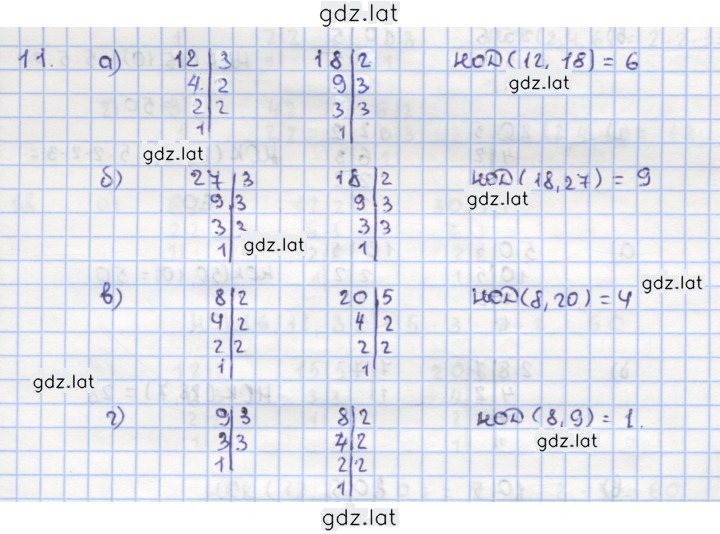 gdz.lat
11. а) 12 | 3 18 | 2 НОД(12, 18) = 6
4 | 2 9 | 3 gdz.lat
2 | 2 3 | 3
1 | 1 |
gdz.lat
б) 27 | 3 18 | 2 НОД(18,27) = 9
9 | 3 9 | 3 gdz.lat
3 | 2 3 | 3
1 | gdz.lat 1 |
gdz.lat
в) 8 | 2 20 | 5 НОД(8,20) = 4
4 | 2 4 | 2
2 | 2 2 | 2
1 | 1 |
gdz.lat
г) 9 | 3 8 | 2 НОД(8,9) = 1.
3 | 3 4 | 2 gdz.lat
1 | 2 | 2
1 |
gdz.lat